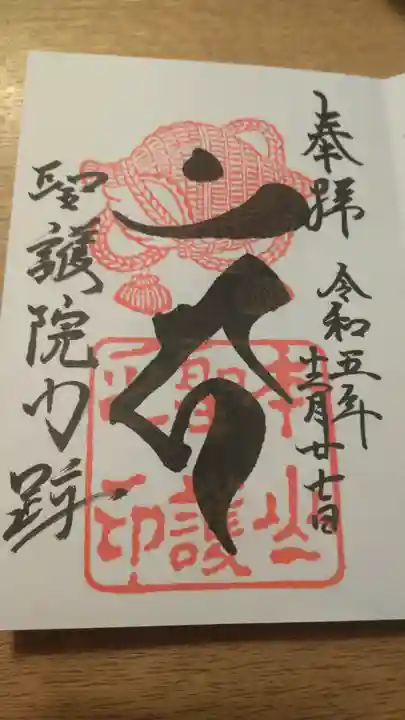 奉拝
令和五年
十二月廿七日
本山
聖護
聖護院門跡